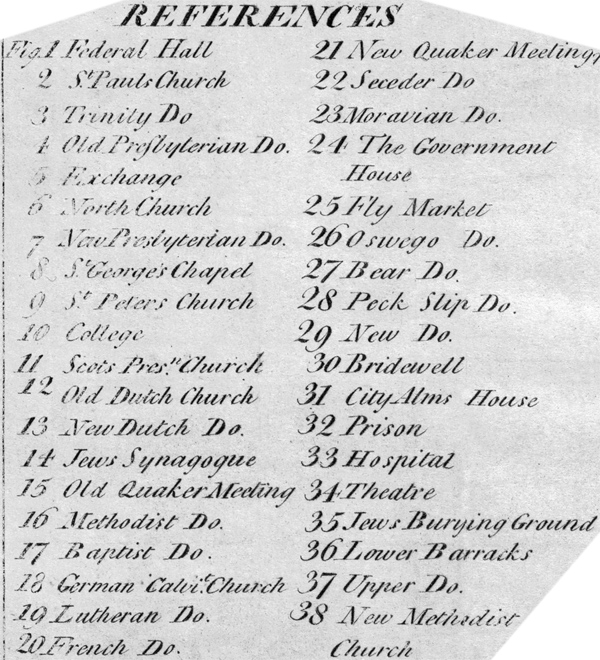 REFERENCES
Fig.1 Federal Hall
2 St Pauls Church
3 Trinity Do
4 Old Presbyterian Do.
5 Exchange
6 North Church
7 New Presbyterian Do.
8 St George's Chapel
9 St Peters Church
10 College
11 Scots Pres.n Church
12 Old Dutch Church
13 New Dutch Do.
14 Jews Synagogue
15 Old Quaker Meeting
16 Methodist Do.
17 Baptist Do.
18 German Calvi.t Church
19 Lutheran Do.
20 French Do.
21 New Quaker Meeting
22 Seceder Do
23 Moravian Do.
24 The Government
House
25 Fly Market
26 Oswego Do.
27 Bear Do.
28 Peck Slip Do.
29 New Do.
30 Bridewell
31 City Alms House
32 Prison
33 Hospital
34 Theatre
35 Jews Burying Ground
36 Lower Barracks
37 Upper Do.
38 New Methodist
Church